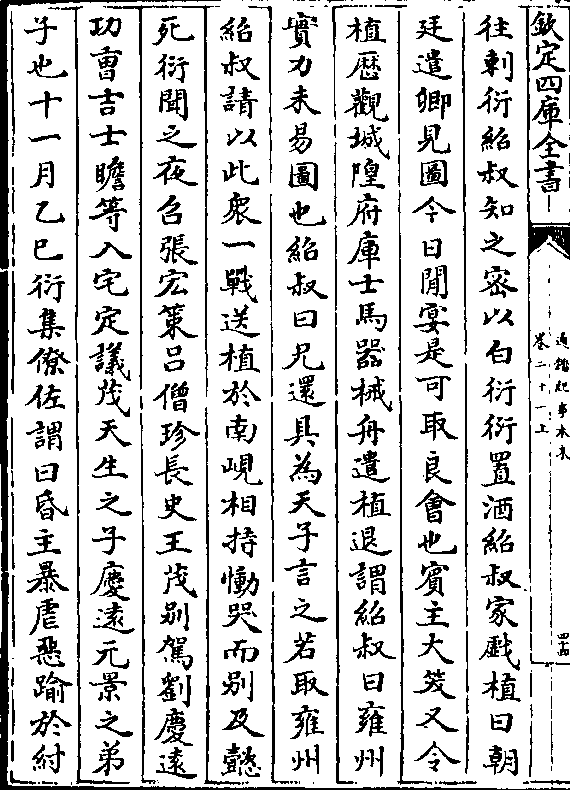 欽定四庫全書
通鑑紀事本末
卷二十一上
往刺衍紹叔知之密以白衍衍置酒紹叔家戲植曰朝
廷遣卿見圖今日閒宴是可取良會也賓主大笑又令
植歴觀城隍府庫士馬器械舟遣植退謂紹叔曰雍州
實力未易圖也紹叔曰兄還具為天子言之若取雍州
紹叔請以此衆一戰送植於南峴相持慟哭而别及懿
死衍聞之夜召張宏策吕僧珍長史王茂别駕劉慶遠
功曹吉士瞻等入宅定議茂天生之子慶遠元景之弟
子也十一月乙巳衍集僚佐謂曰昏主暴虐惡踰於紂